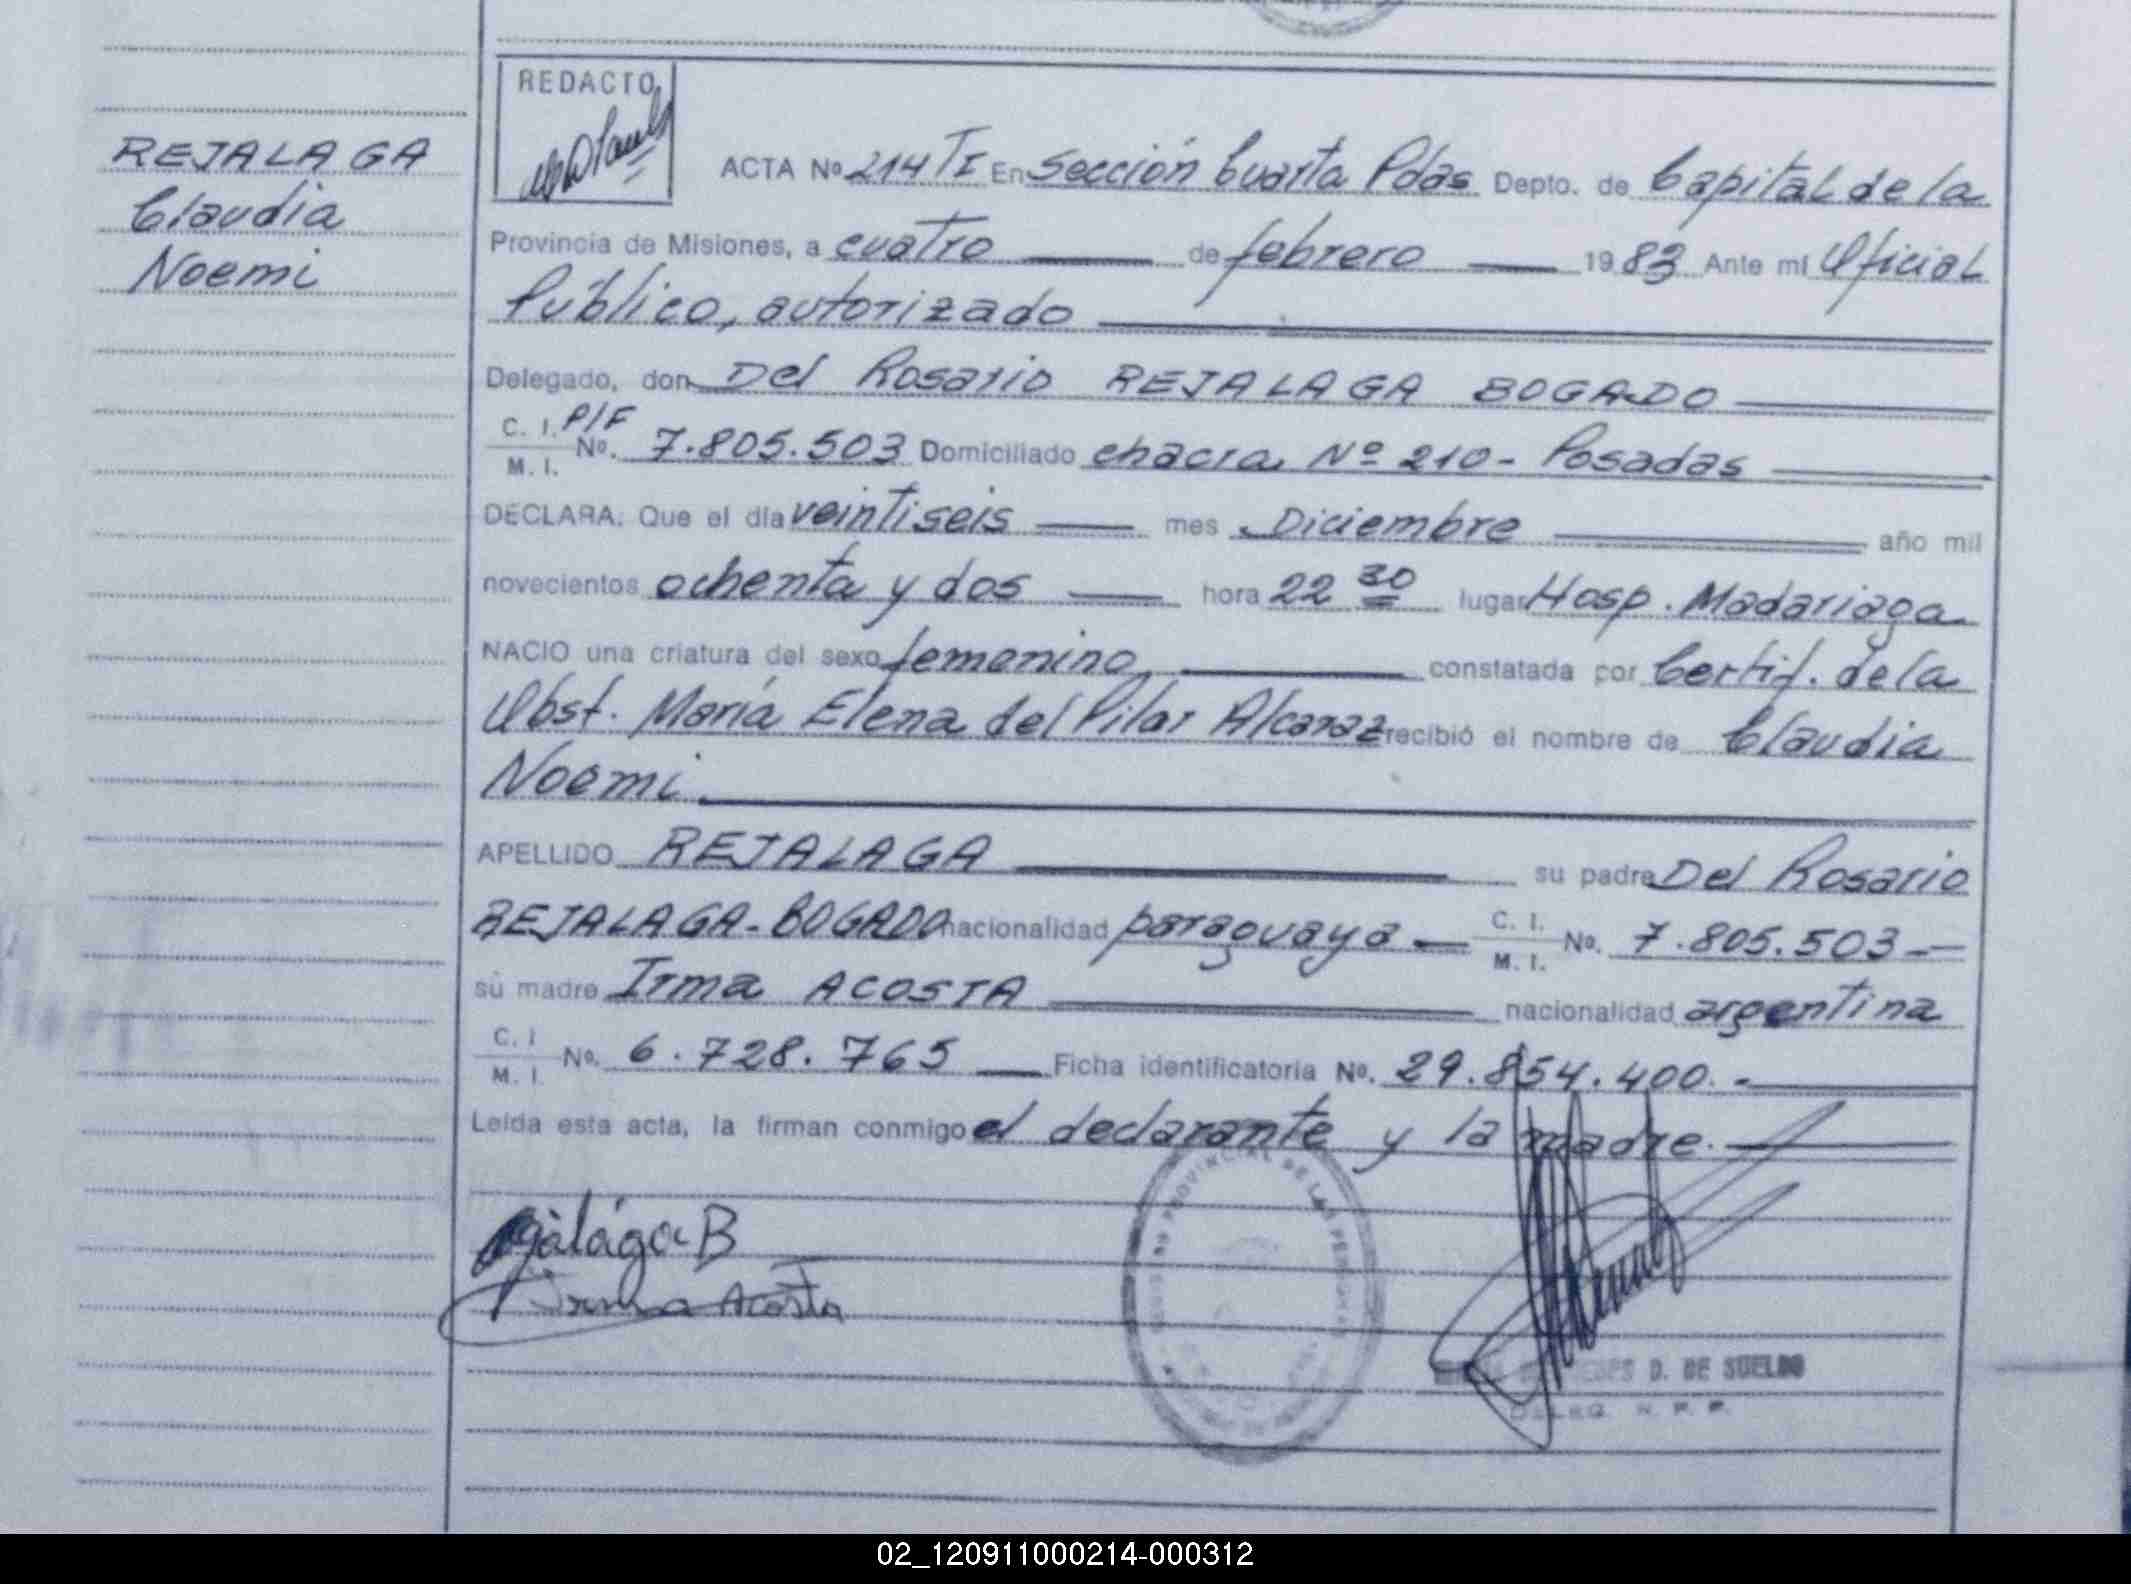 REDACTO
REJALAGA
Claudia
Noemi
ACTA Nº 214 TI En Sección Cuarta Pdas Depto. de Capital de la
Provincia de Misiones, a cuatro de febrero 1983 Ante mí Oficial
Público, autorizado
Delegado, don Del Rosario REJALAGA BOGADO
C. I. P/F
M. I. Nº. 7.805.503 Domiciliado chacra Nº 210 - Posadas
DECLARA: Que el día veintiseis mes Diciembre año mil
novecientos ochenta y dos hora 22 30 lugar Hosp. Madariaga
NACIO una criatura del sexo femenino, constatada por Certif. de la
Obst. María Elena del Pilar Alcaraz recibió el nombre de Claudia
Noemi
APELLIDO REJALAGA su padre Del Rosario
REJALAGA - BOGADO nacionalidad paraguaya C. I. M. I. Nº. 7.805.503 -
su madre Irma ACOSTA nacionalidad argentina
C. I M. I. Nº. 6.728.765 Ficha identificatoria Nº. 29.854.400. -
Leída esta acta, la firman conmigo el declarante y la madre.
Irma Acosta
PROVINCIAL DE LAS PERSONAS
D. DE SUELDO
DELEG. R. P. P.
02_120911000214-000312